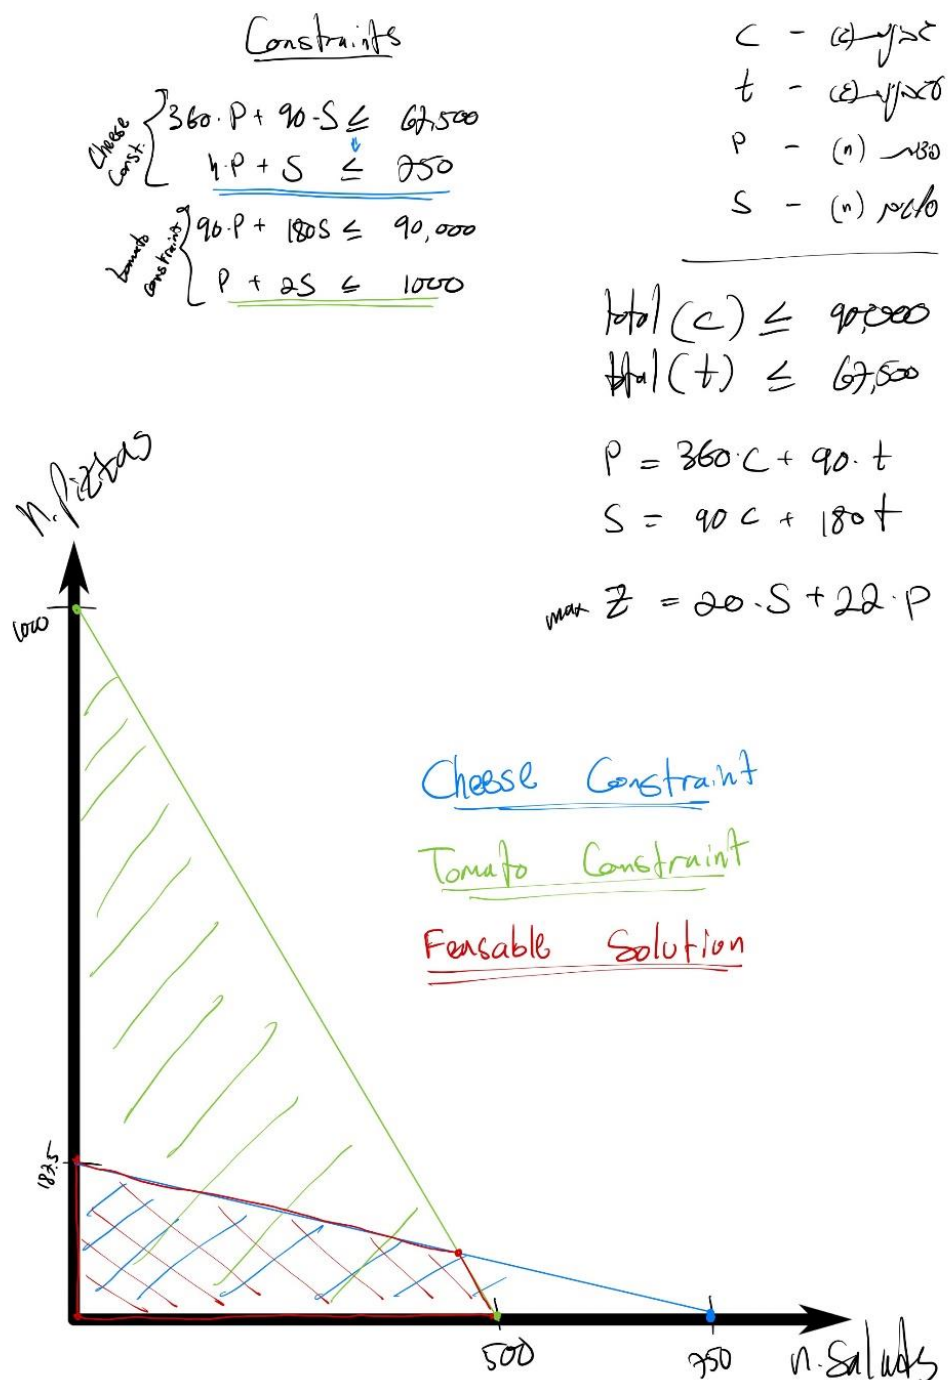 Constraints
Cheese Const.
360·P + 90·S ≤ 67,500
4·P + S ≤ 750
tomato constraint
90·P + 180S ≤ 90,000
P + 2S ≤ 1000
C -
t -
P - (n)
S - (n)
total (c) ≤ 90,000
total (t) ≤ 67,500
P = 360·C + 90·t
S = 90C + 180t
max Z = 20·S + 22·P
n. Pizzas
1000
Cheese Constraint
Tomato Constraint
Feasable Solution
187.5
500
750
n. Salads